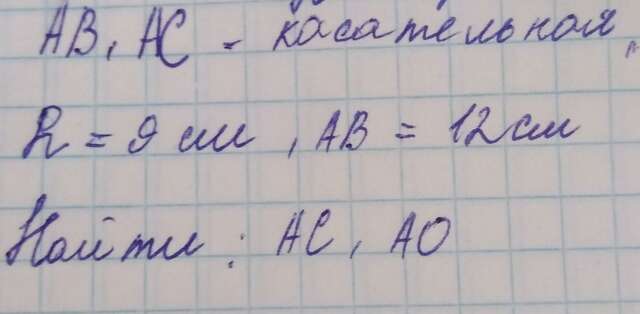 AB, AC - касательная
R = 9 см, AB = 12 см
Найти: AC, AO